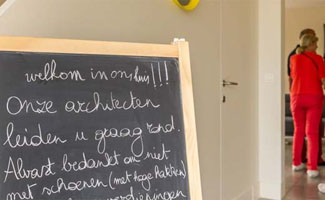 welkom in ons huis!!!
Onze architecten
leiden u graag rond.
Alvast bedankt om niet
met schoenen (met hoge hakken)
verdiepingen